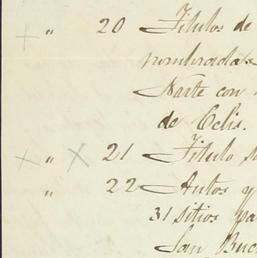 " 20 Titulos de
nombrada
Norte con
de Celis.
" 21 Titulo
" 22 Autos y
31 sitios pa
San Buen